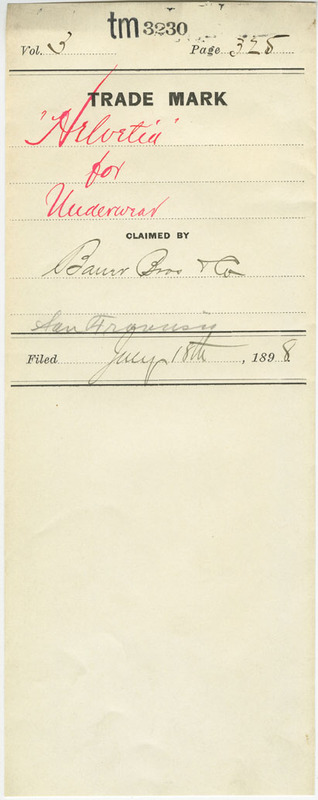 tm 3230
Vol. 3 Page 325
TRADE MARK
"Helvetia"
for
Underwear
CLAIMED BY
Bauer Bros & Co
San Francisco
Filed July 18th, 1898